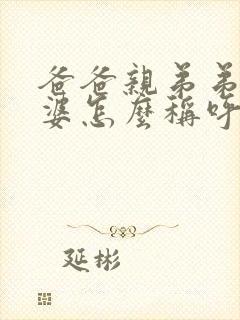 爸爸親弟弟
婆怎麼稱呼
延彬